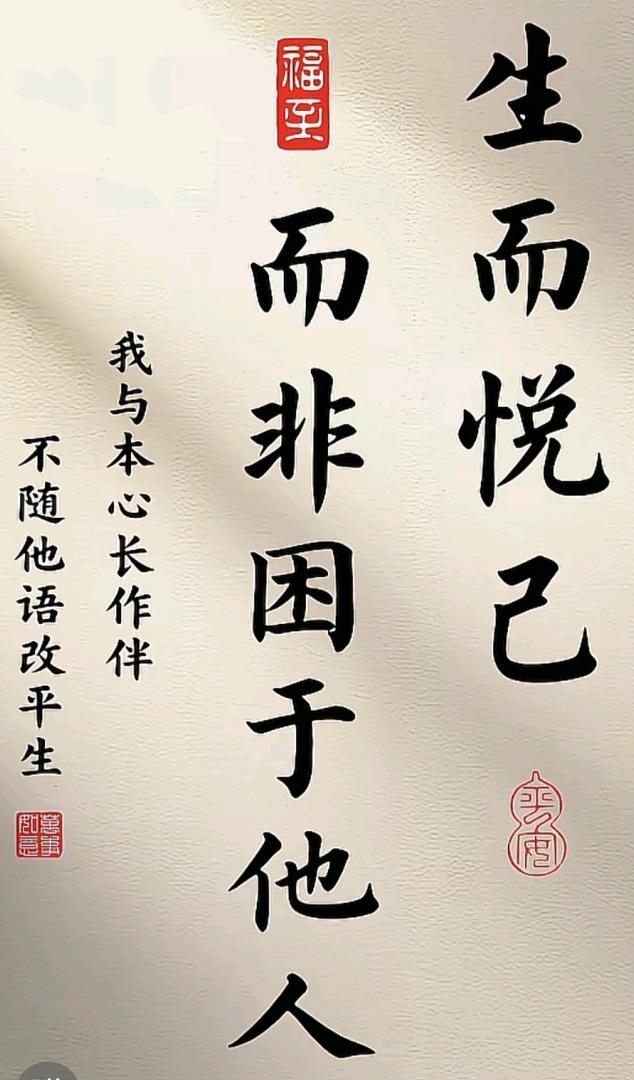 生而悦己
平安
福至
而非困于他人
我与本心长作伴
不随他语改平生
萬事如意